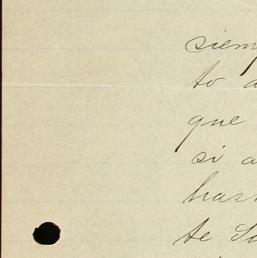 siem
to a
que
si a
has
te